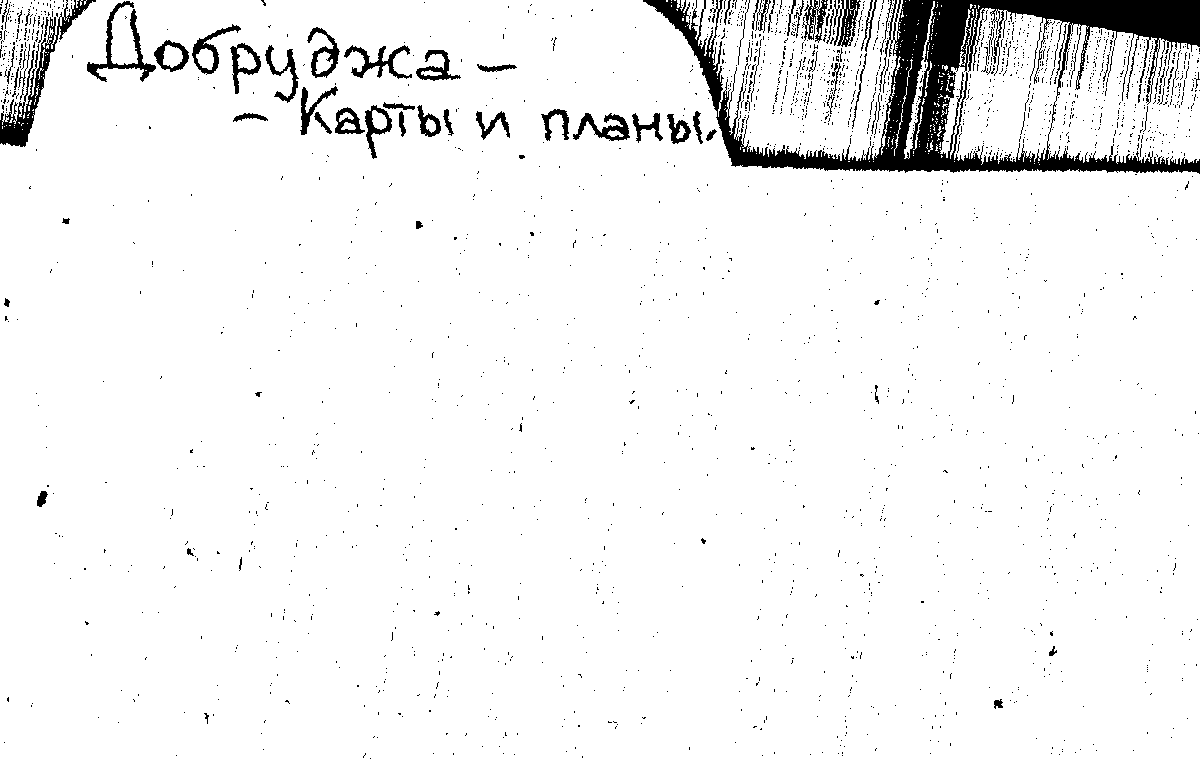 Добруджа –
– Карты и планы.